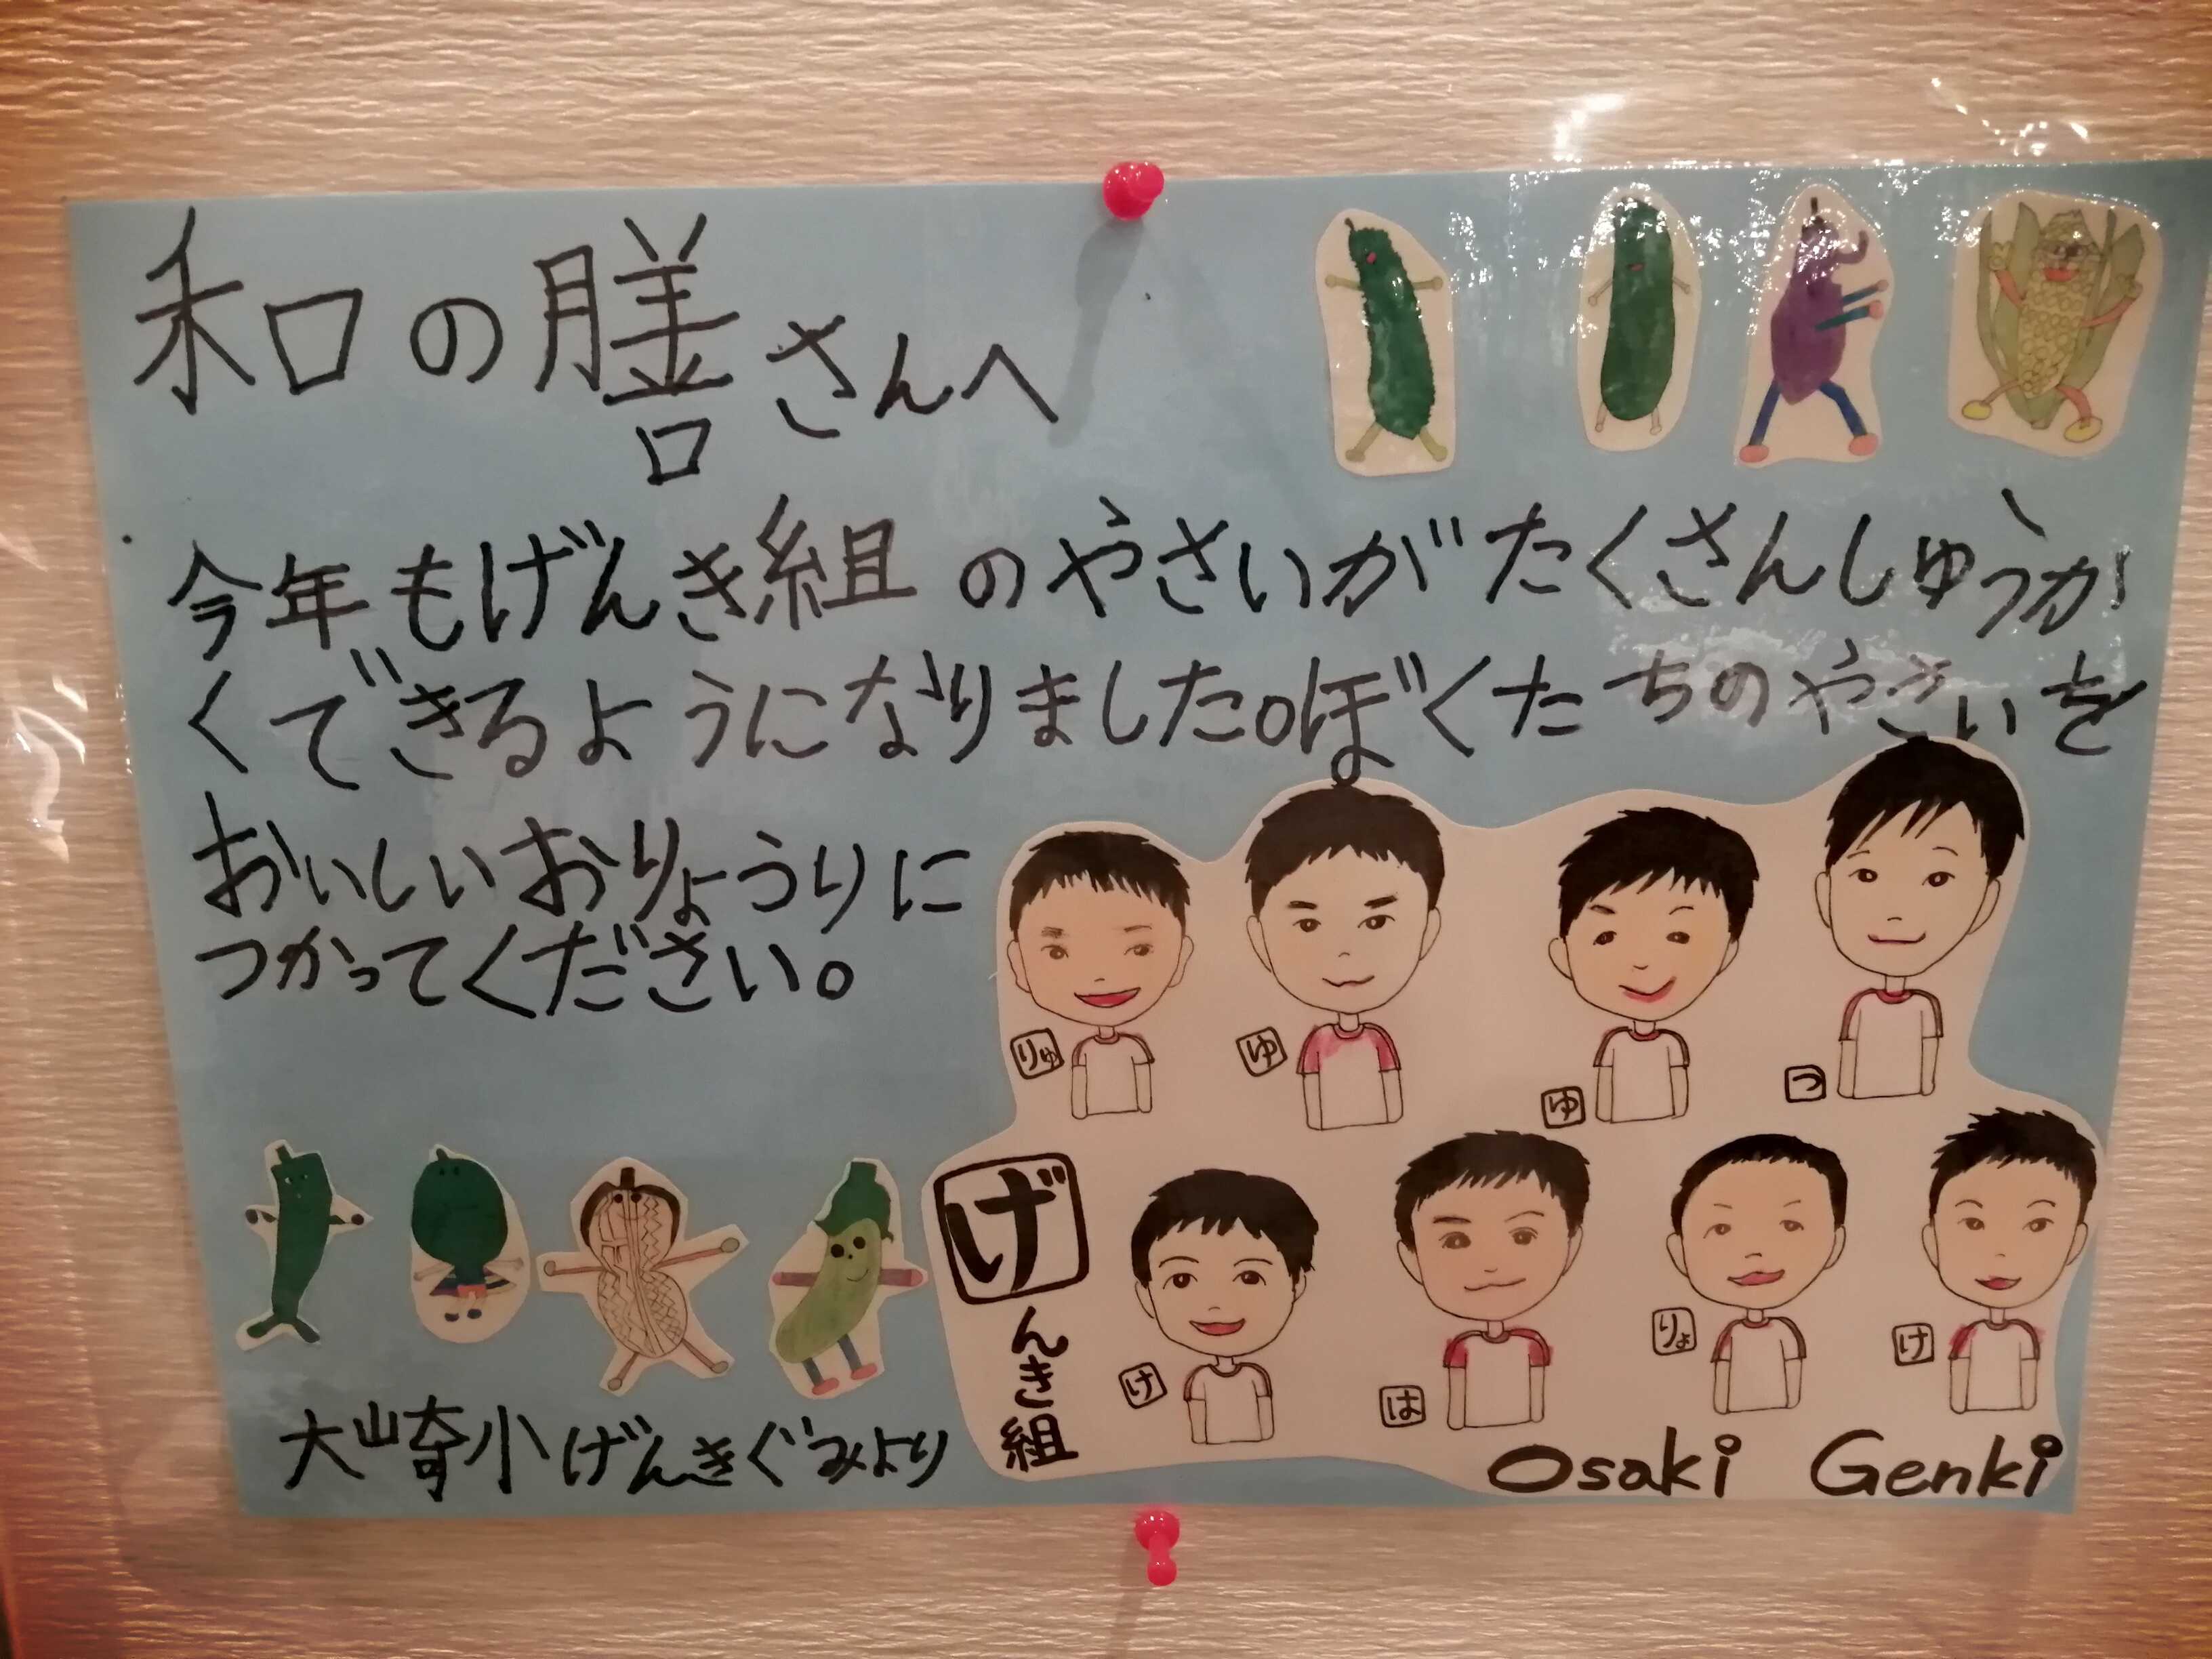 和の膳さんへ
今年もげんき組のやさいがたくさんしゅうか
くできるようになりました。ぼくたちのやさいを
おいしいおりょうりに
つかってください。
りゅ
ゆ
ゆ
つ
げんき組
け
は
りょ
け
大崎小げんきぐみより
Osaki Genki